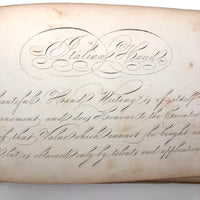 Italian Hand
Beautiful Hand Writing is of itself
Ornament, and does Honour to the Executor
of that Value which cannot be bought
that is obtained only by talents and application